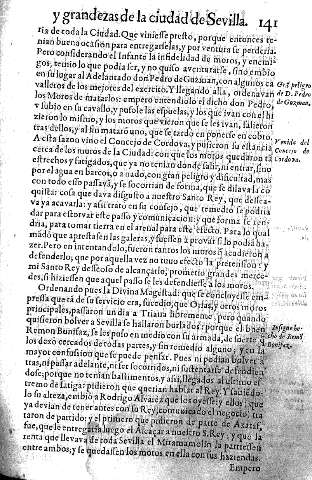 y grandezas de la ciudad de Sevilla. 141
ria de toda la Ciudad. Que viniesse presto, porque entonces te-
nian buena ocasion para entregarselas, y por ventura se perderia.
Pero considerando el Infante la infidelidad de moros, y enemi-
gos, temio lo que podia ser, y no quiso aventurarse, sino embió
en su lugar al Adelantado don Pedro de Guzman, con algunos ca-
valleros de los mejores del exercito. Y llegando alla, ordenavan
los Moros de matarlos: empero entendiolo el dicho don Pedro,
y subio en su cavallo, y pusole las espuelas, y los que ivan con el hi
zieron lo mismo, y los moros que vieron que se les ivan, salieron
tras dellos, y al fin mataró uno, que se tardó en ponerse en cobro.
A esta sazon vino el Concejo de Cordova, y pusieron su estancia
cerca de los muros de la Ciudad: con que los moros quedaron tã
estrechos y fatigados, que ya no tenian donde salir, ni entrar, sino
por el agua en barcos, o a nado, con gran peligro y dificultad, mas
con todo esso passavã, y se socorrian de forma, que se dilava la cõ
quista: cosa que dava disgusto a nuestro Santo Rey, que desea-
va ya acavarla: y assi tratò en su consejo, que remedio se podria
dar para estorvar este passo y comunicacion; y que forma se ten-
dria, para tomar tierra en el arenal para este efecto. Para lo qual
mandó que aprestassen las galeras, y fuessen a provar si lo podiã ha-
zer. Pero en intentandolo, fueron tantos los moros q̃ acudieron a
defenderlo, que por aquella vez no tuvo efecto la pretension: y
mi Santo Rey desseoso de alcançarlo, prometio grandes merce-
des, si hiziessen que aquel passo se les defendiesse a los moros.
Ordenando pues la Divina Magestad: que se concluyesse em-
pressa que tã de su servicio era, sucedio, que Orias, y otros moros
principales, passaron un dia a Triana libremente, pero quando
quisieron bolver a Sevilla se hallaron burlados: porque el buen
Remon Bonifaz, se les puso en medio con su armada, de suerte q̃
los dexò cercados de todas partes, y sin remedio alguno; y en la
mayor confussion que se puede pensar. Pues ni podian bolver a
tras, ni passar adelante, ni ser socorridos, ni sustentarse
dose; porque no tenian bastimentos, y assi, llegados al ultimo es-
tremo de fatiga: pidieron que querian hablar al Rey. Y sabiendo-
lo su alteza, embiò a Rodrigo Alvarez que los oyesse: y ellos; que
ya devian de tener antes con su Rey, comunicado el negocio; tra
taron de partido: y el primero que pusieron de parte de Axataf,
fue, que le entregaria luego el Alcaçar a nuestro S. Rey: y que la
renta que llevava de toda Sevilla el Miramamolin la partiessen
entre ambos; y se quedassen los moros en ella con sus haziendas.
Empero
Grã peligro
de D. Pedro
de Guzman.
Venida del
Concejo de
Cordova.
Insigne he-
cho de Remõ
Bonifaz.